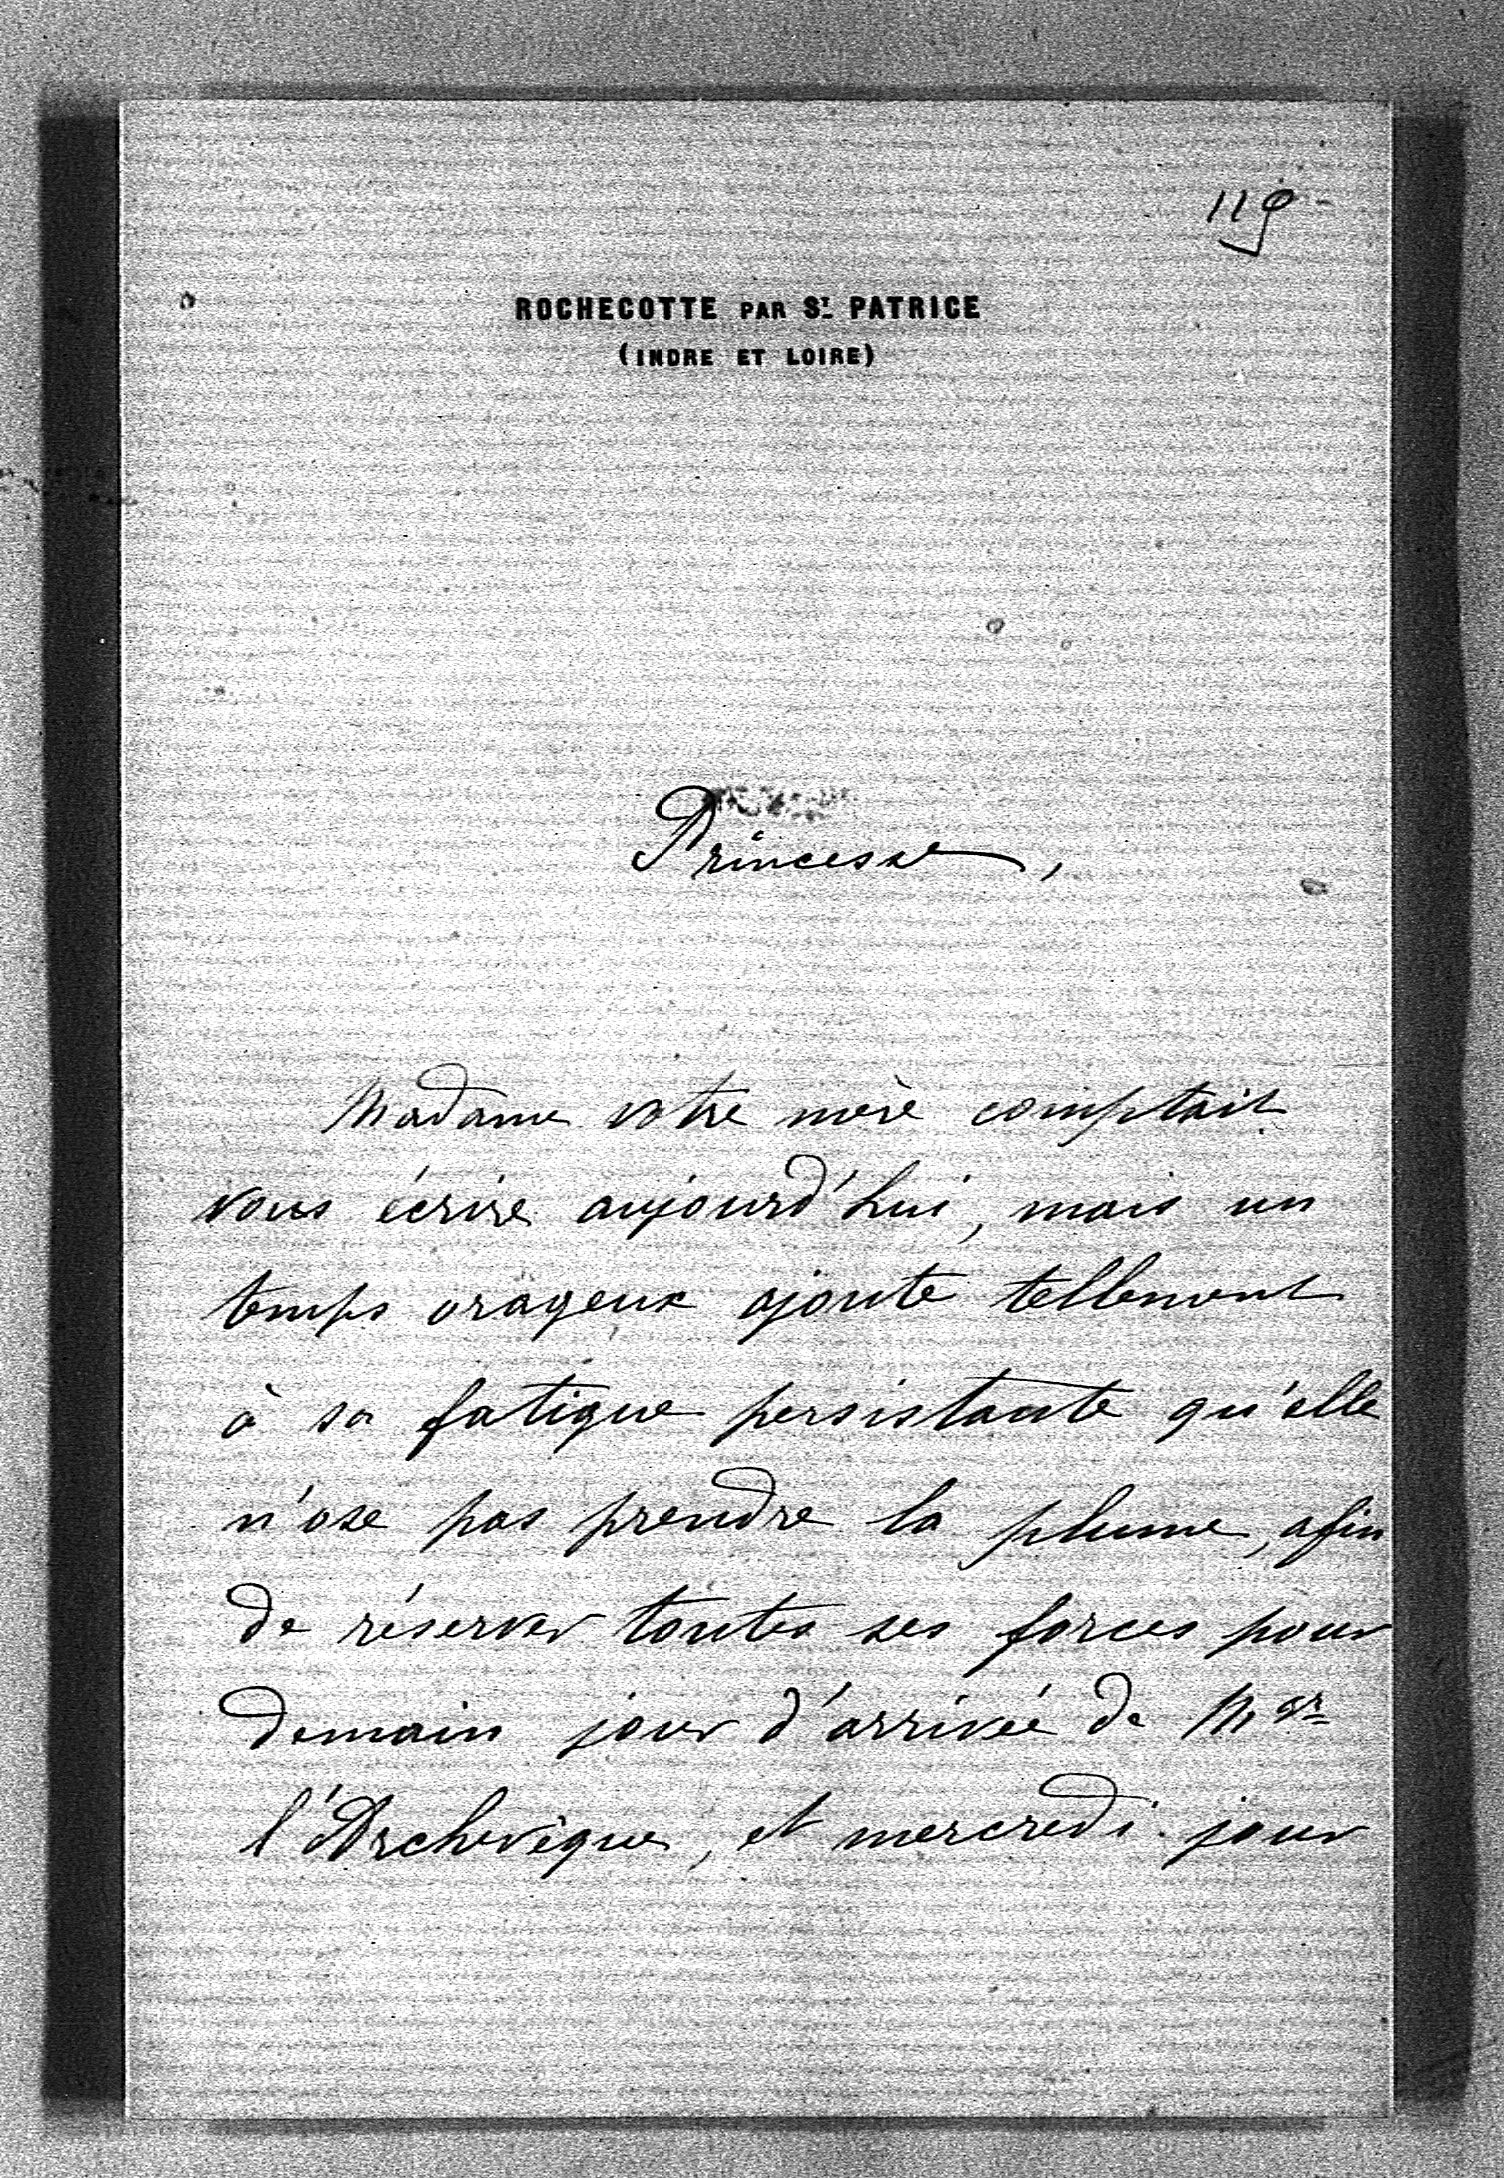 119
ROCHECOTTE PAR ST PATRICE
(INDRE ET LOIRE)
Princesse,
Madame votre mère comptait
vous écrire aujourd'hui, mais un
temps orageux ajoute tellement
à sa fatigue persistante qu'elle
n'ose pas prendre la plume, afin
de réserver toutes ses forces pour
demain jour d'arrivée de Mgr
l'Archevêque, et mercredi jour